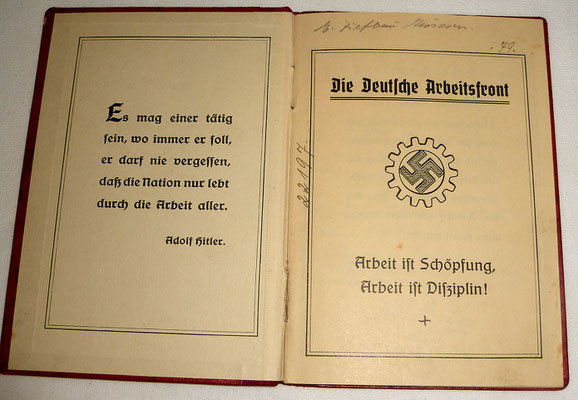 Es mag einer tätig
sein, wo immer er soll,
er darf nie vergessen,
daß die Nation nur lebt
durch die Arbeit aller.
Adolf Hitler.
70.
22197.
Die Deutsche Arbeitsfront
Arbeit ist Schöpfung,
Arbeit ist Disziplin!